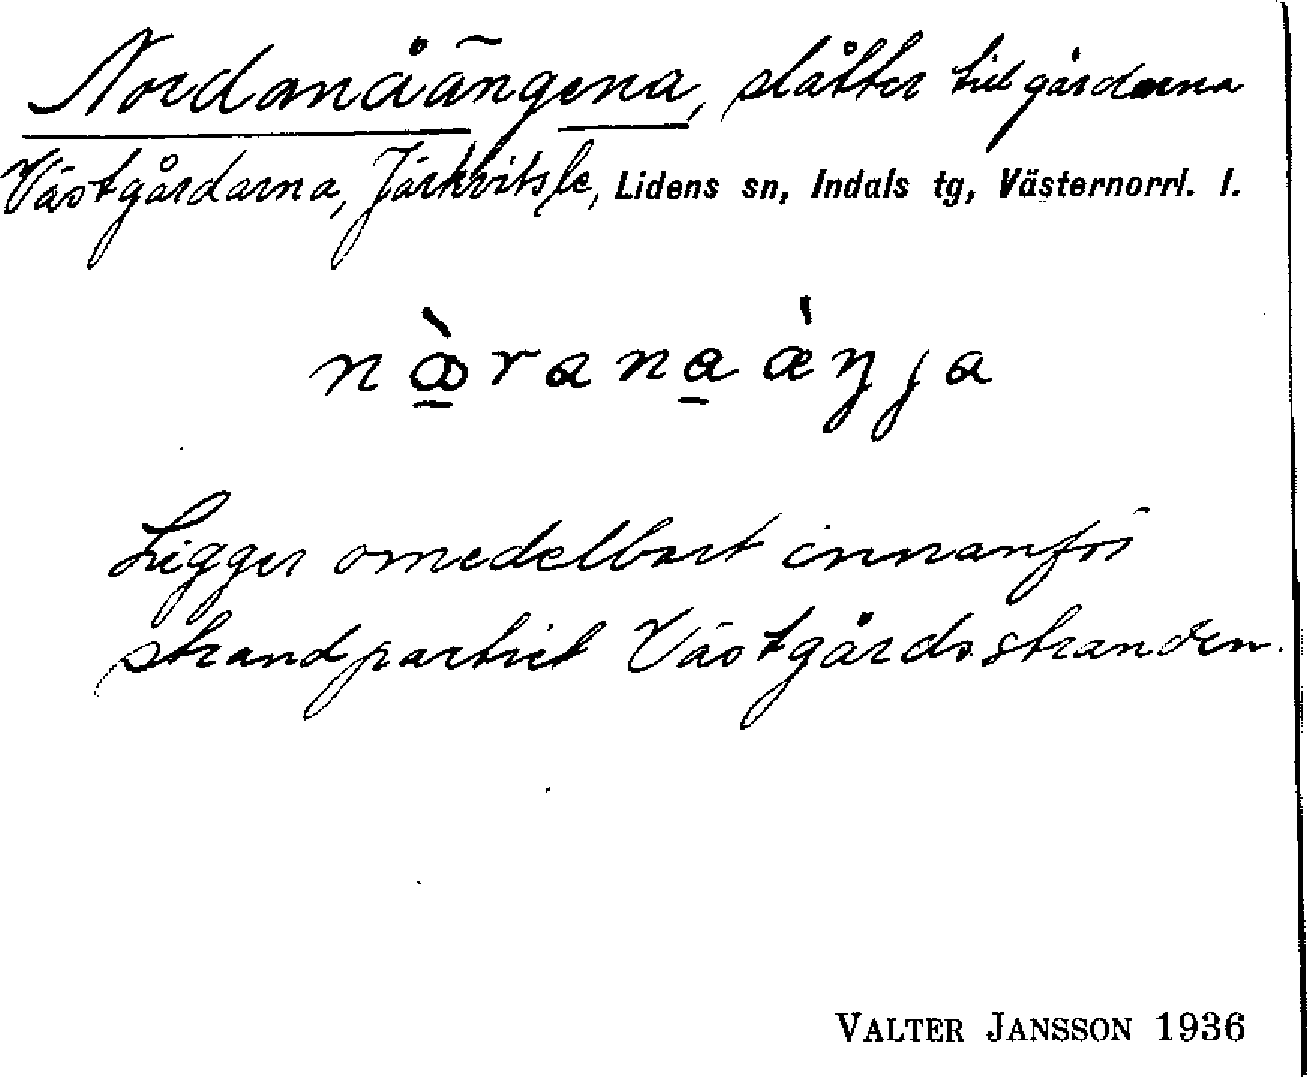 Nordanåängena, slåtter till gårdarna
Västgårdarna, Järkvitsle, Lidens sn, Indals tg, Västernorrl. l.
nàranaæ̀ŋja
Ligger omedelbart innanför
strandpartiet Västgårdsstranden.
VALTER JANSSON 1936